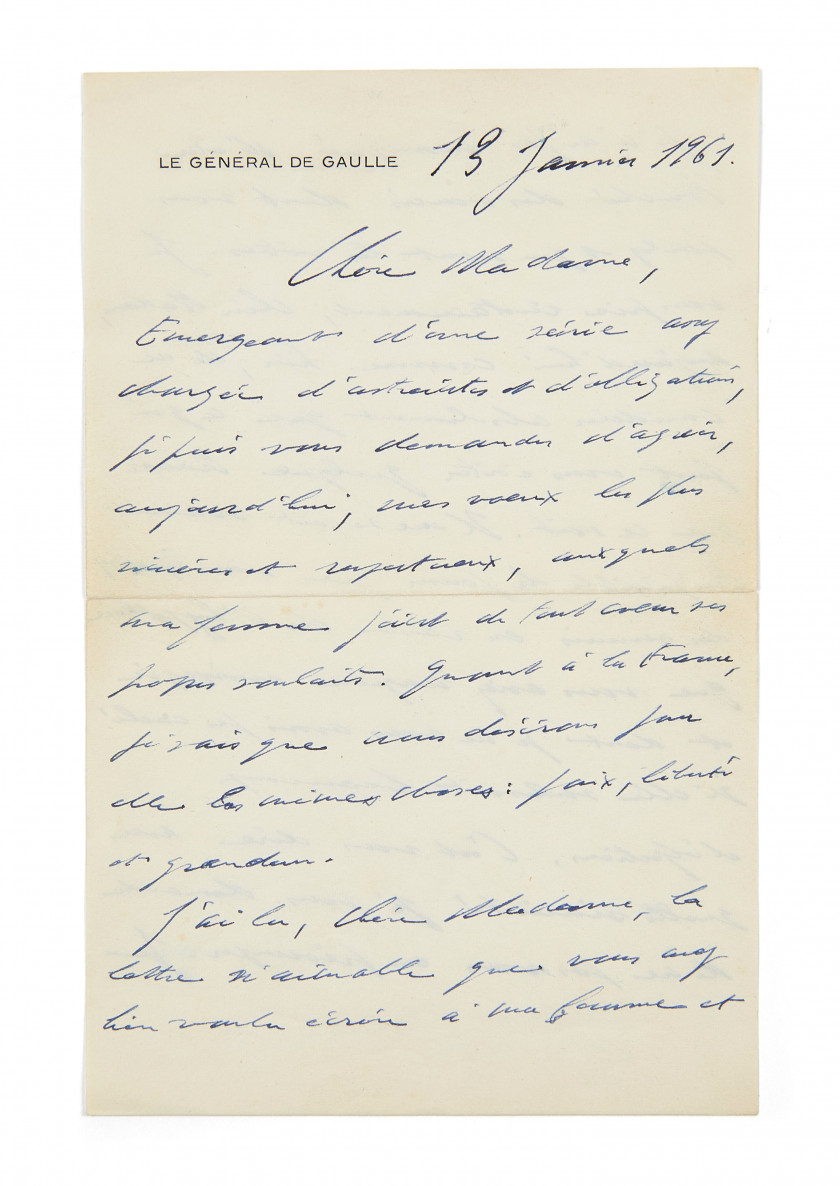 LE GÉNÉRAL DE GAULLE 13 Janvier 1961.
Chère Madame,
Emergeant d'une série assez
chargée d'astreintes et d'obligations,
je puis vous demander d'agréer,
aujourd'hui, mes voeux les plus
sincères et respectueux, auxquels
ma femme joint de tout coeur ses
propres souhaits. Quant à la France,
je sais que nous désirons pour
elle les mêmes choses : paix, liberté
et grandeur.
J'ai lu, Chère Madame, la
lettre si aimable que vous avez
bien voulu écrire à ma femme et